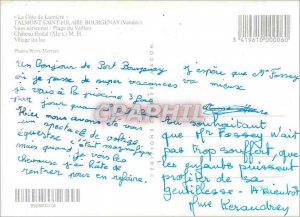 « La Côte de Lumière »
TALMONT SAINT-HILAIRE BOURGENAY (Vendée)
Vues aériennes - Plage du Veillon
Château féodal (XIe s.) M. H.
Village du lac
Photos Pierre Marteau
3 419610 000060
Un Bonjour de Port Bourgenay
où je passe de super vacances
je vais à la piscine 3 fois
par jour
Hier nous avons vu
un spectacle de voltige
équestre c'était magnifique
avec tous les
chevaux j'ai hâte de
rentrer pour en refaire.
J'espère que Mr Fossey
va mieux
En souhaitant
que Mr Fossey n'ait
pas trop souffert, que
les enfants puissent
profiter de sa
gentillesse - A Bientôt
Mme Keraudrey
PRIVATE COLLECTION